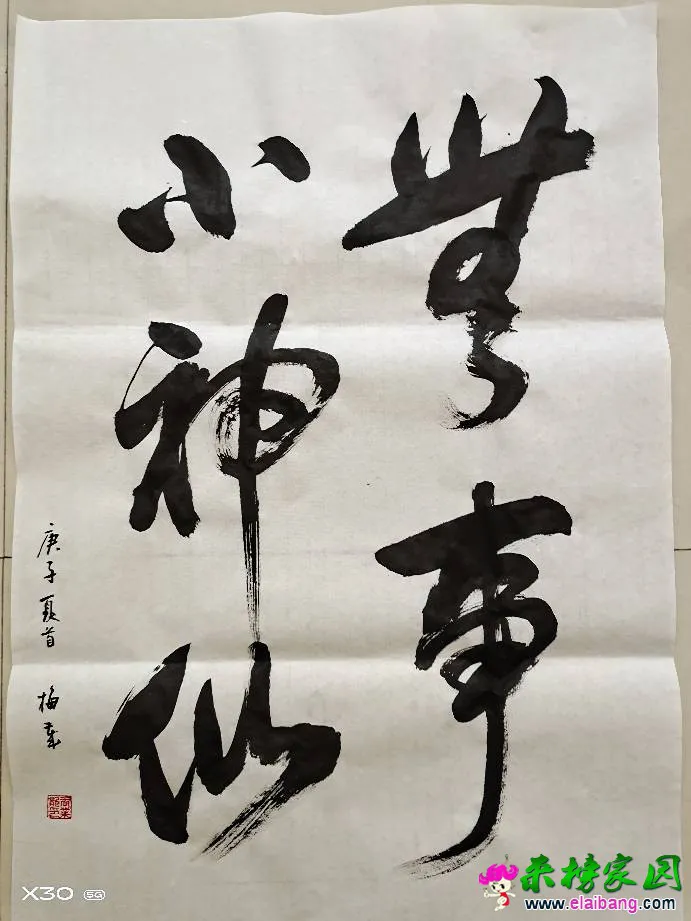 無事
小神仙
庚子夏首 梅
X30 5G
来榜家园
www.elaibang.com